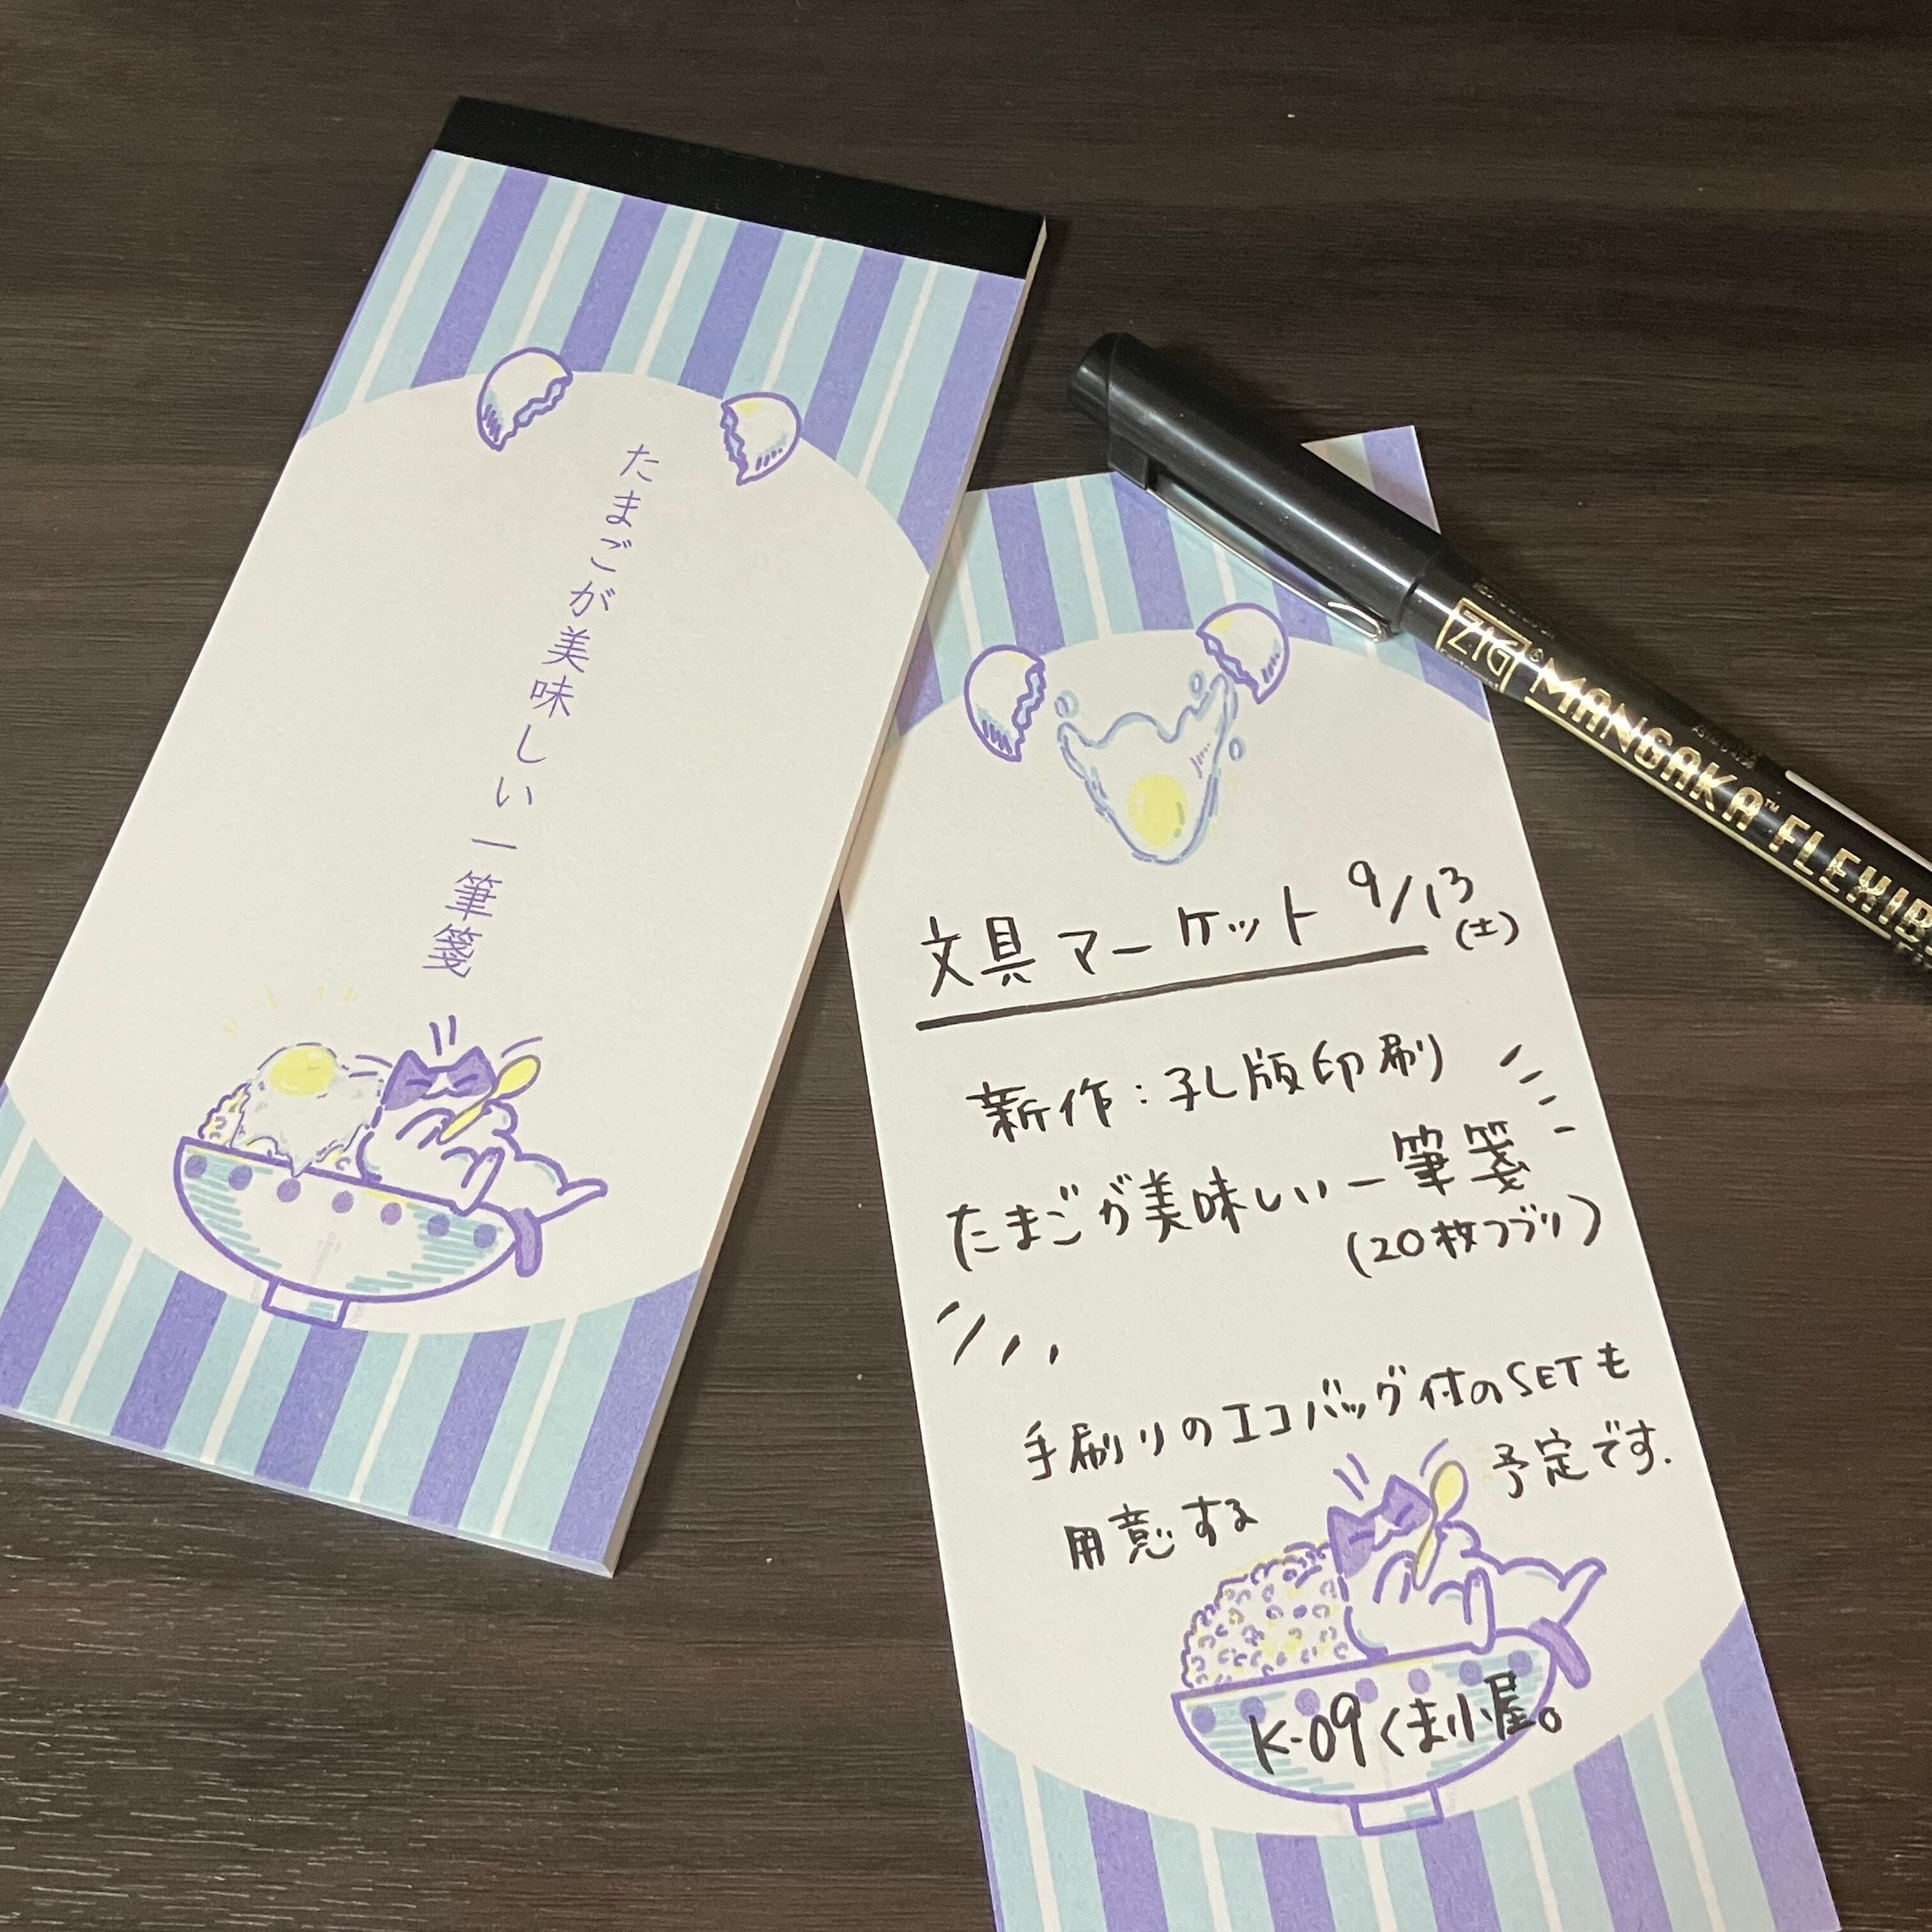 たまごが美味しい一筆箋
文具マーケット 9/13
(土)
新作:孔版印刷
たまごが美味しい一筆箋
(20枚つづり)
手刷りのエコバッグ付のSETも
用意する 予定です.
K-09 くま小屋。
ZIG
MANGAKA™ FLEXIB